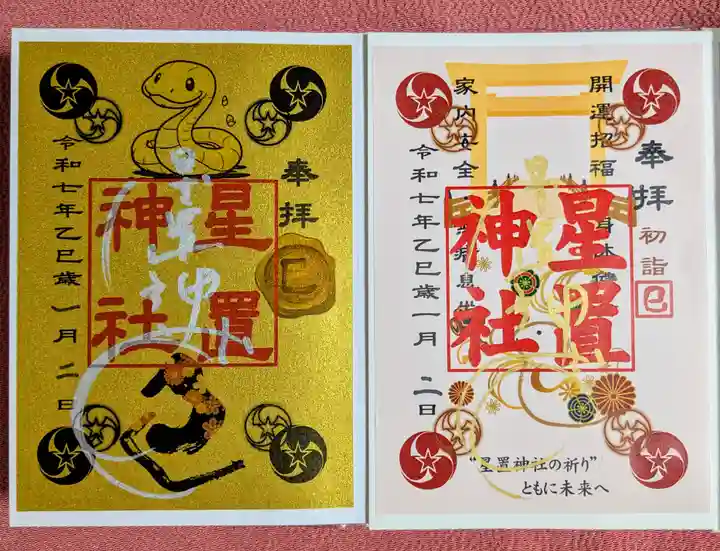 奉拝
星置
神社
巳
令和七年乙巳歳一月二日
開運招福
家内安全
奉拝
初詣
巳
星置
神社
令和七年乙巳歳一月二日
“星置神社の祈り”
ともに未来へ